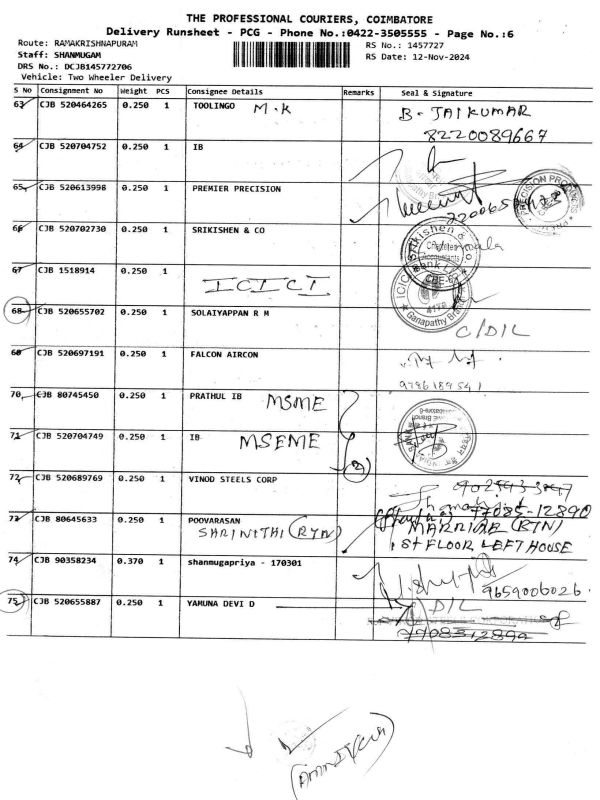 THE PROFESSIONAL COURIERS, COIMBATORE
Delivery Runsheet - PCG - Phone No.:0422-3505555 - Page No.:6
Route: RAMAKRISHNAPURAM
RS No.: 1457727
Staff: SHANMUGAM
RS Date: 12-Nov-2024
DRS No.: DCJB145772706
Vehicle: Two Wheeler Delivery
S No Consignment No Weight PCS Consignee Details Remarks Seal & Signature
63 CJB 520464265 0.250 1 TOOLINGO M.K B. JAIKUMAR
8220089667
64 CJB 520704752 0.250 1 IB
65 CJB 520613998 0.250 1 PREMIER PRECISION
66 CJB 520702730 0.250 1 SRIKISHEN & CO
67 CJB 1518914 0.250 1 ICICI
68 CJB 520655702 0.250 1 SOLAIYAPPAN R M C/DIL
69 CJB 520697191 0.250 1 FALCON AIRCON
9786189541
70 CJB 80745450 0.250 1 PRATHUL IB MSME
71 CJB 520704749 0.250 1 IB MSEME
(2)
72 CJB 520689769 0.250 1 VINOD STEELS CORP
77085-12890
73 CJB 80645633 0.250 1 POOVARASAN MARRIAB (RTN)
SHRINITHI (RTN) 1st FLOOR LEFT HOUSE
74 CJB 90358234 0.370 1 shanmugapriya - 170301
9659006026
75 CJB 520655887 0.250 1 YAMUNA DEVI D D/L
7708512890